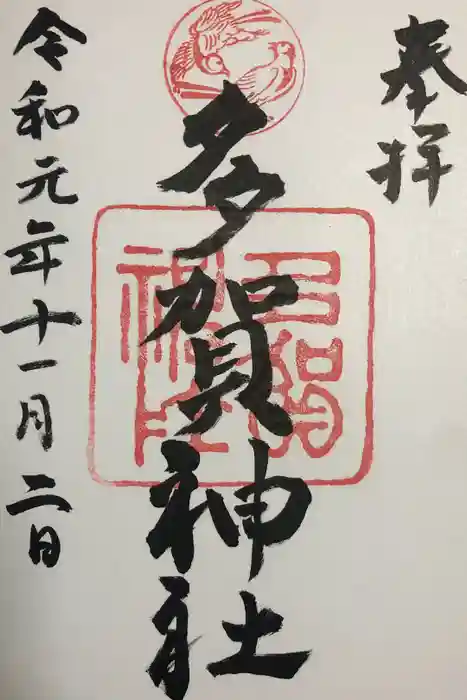 奉拝
多賀神社
令和元年十一月二日